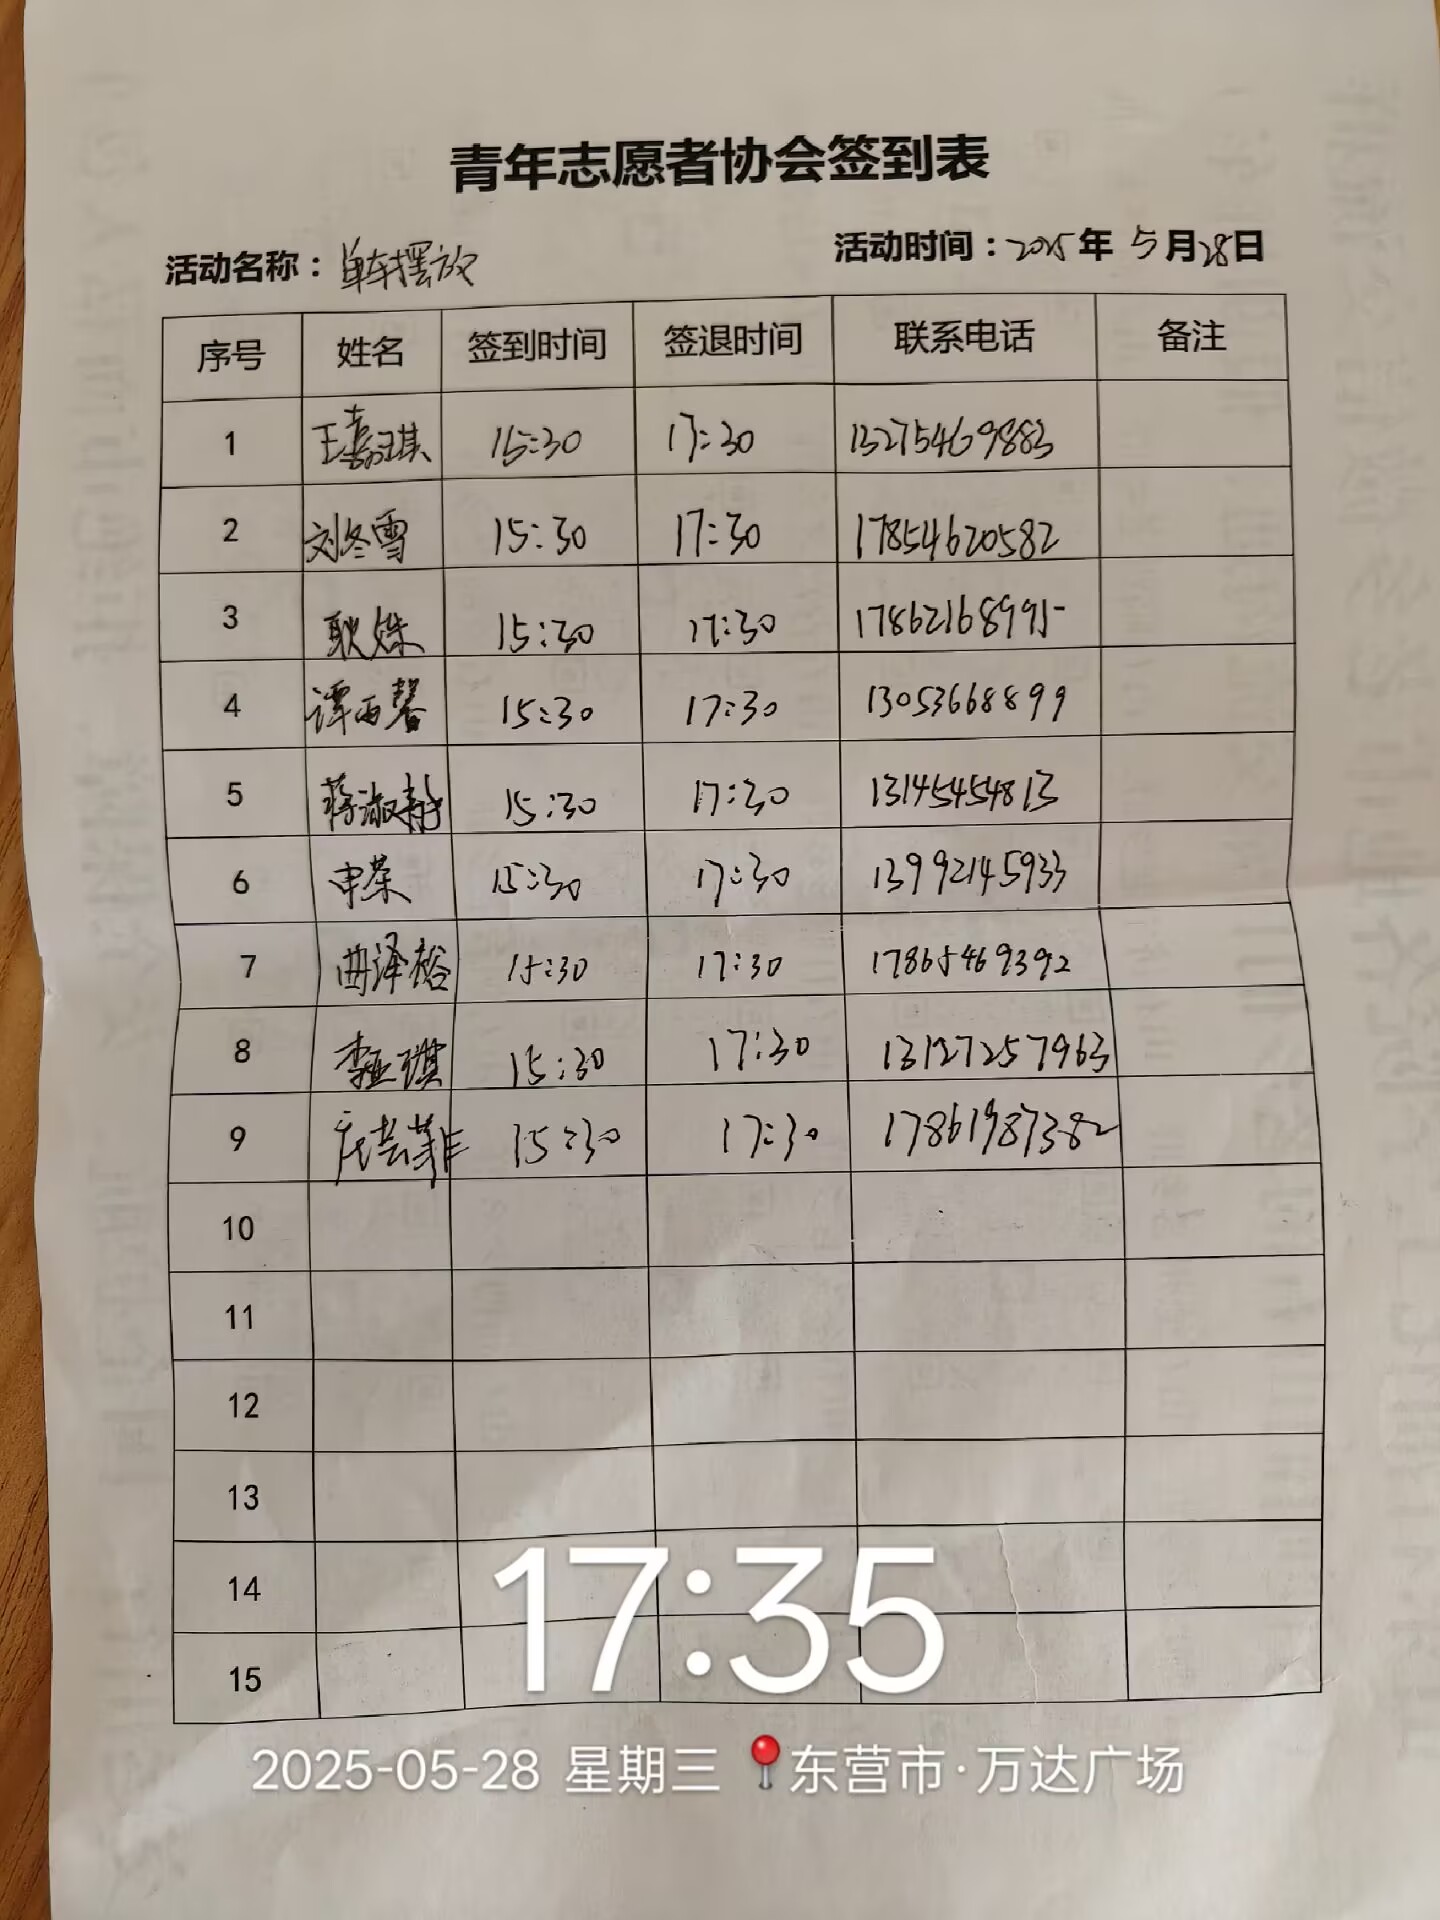 青年志愿者协会签到表
活动名称：单车摆放 活动时间：2025年5月28日
序号 姓名 签到时间 签退时间 联系电话 备注
1 王嘉琪 15:30 17:30 13275469883
2 刘冬雪 15:30 17:30 17854620582
3 耿姝 15:30 17:30 17862168995
4 谭雨馨 15:30 17:30 13053668899
5 蒋淑静 15:30 17:30 13145454813
6 申荣 15:30 17:30 13992145933
7 曲泽裕 15:30 17:30 17865469392
8 李亚琪 15:30 17:30 13127257963
9 芸菲 15:30 17:30 17861987382
10
11
12
13
14
15
17:35
2025-05-28 星期三 东营市·万达广场